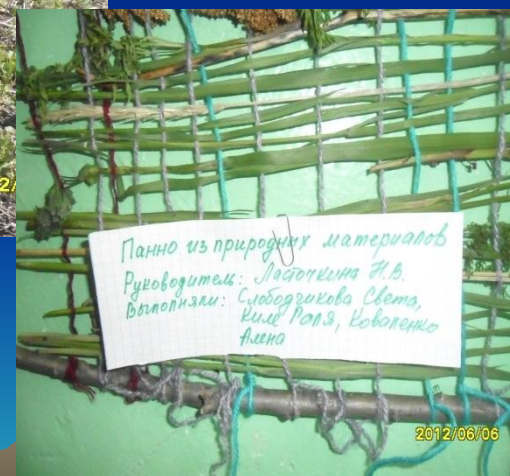 Панно из природных материалов
Руководитель: Ласточкина Н.В.
Выполняли: Слободчикова Света,
Ким Галя, Коваленко
Алена
2012/06/06